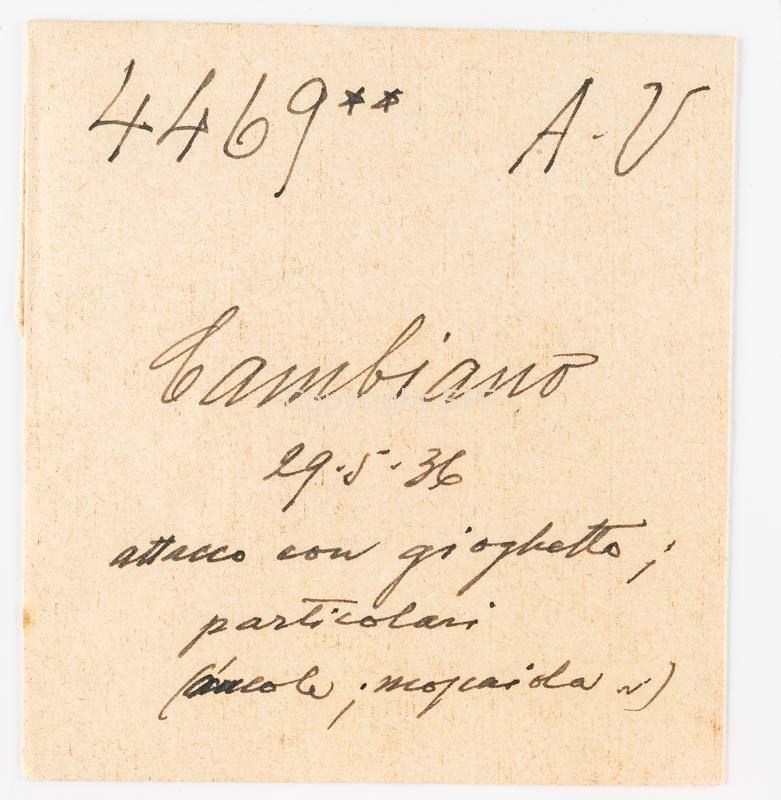 4469** A-V
Cambiano
29.5.36
attacco con gioghetto;
particolari